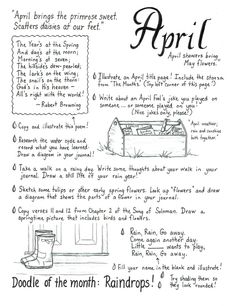 "April brings the primrose sweet.
Scatters daisies at our feet."
April
April showers bring
May flowers
The Year's at the Spring
And day's at the morn;
Morning's at seven;
The hillside's dew-pearled;
The lark's on the wing;
The snail's on the thorn;
God's in his heaven -
All's right with the world!
- Robert Browning
Illustrate an April title page! Include the stanza
from "The Months" (Top left corner of this page.)
Write about an April Fool's joke you played on
someone... or someone played on you!
(Nice jokes only, please!)
Copy and illustrate this poem!
Research the water cycle and
record what you have learned.
Draw a diagram in your journal!
April weather,
rain and sunshine
both together.
Take a walk on a rainy day. Write some thoughts about your walk in your
journal. Draw a still life of your rain gear!
Sketch some tulips or other early spring flowers. Look up "flowers" and draw
a diagram that shows the parts of a flower in your journal.
Copy verses 11 and 12 from Chapter 2 of the Song of Solomon. Draw a
springtime picture that includes birds and flowers.
Rain, Rain, Go away.
Come again another day.
Little ____ wants to play,
Rain, Rain, Go Away.
Fill your name in the blank and illustrate!
Doodle of the month: Raindrops!
Try shading them so
they look "rounded".